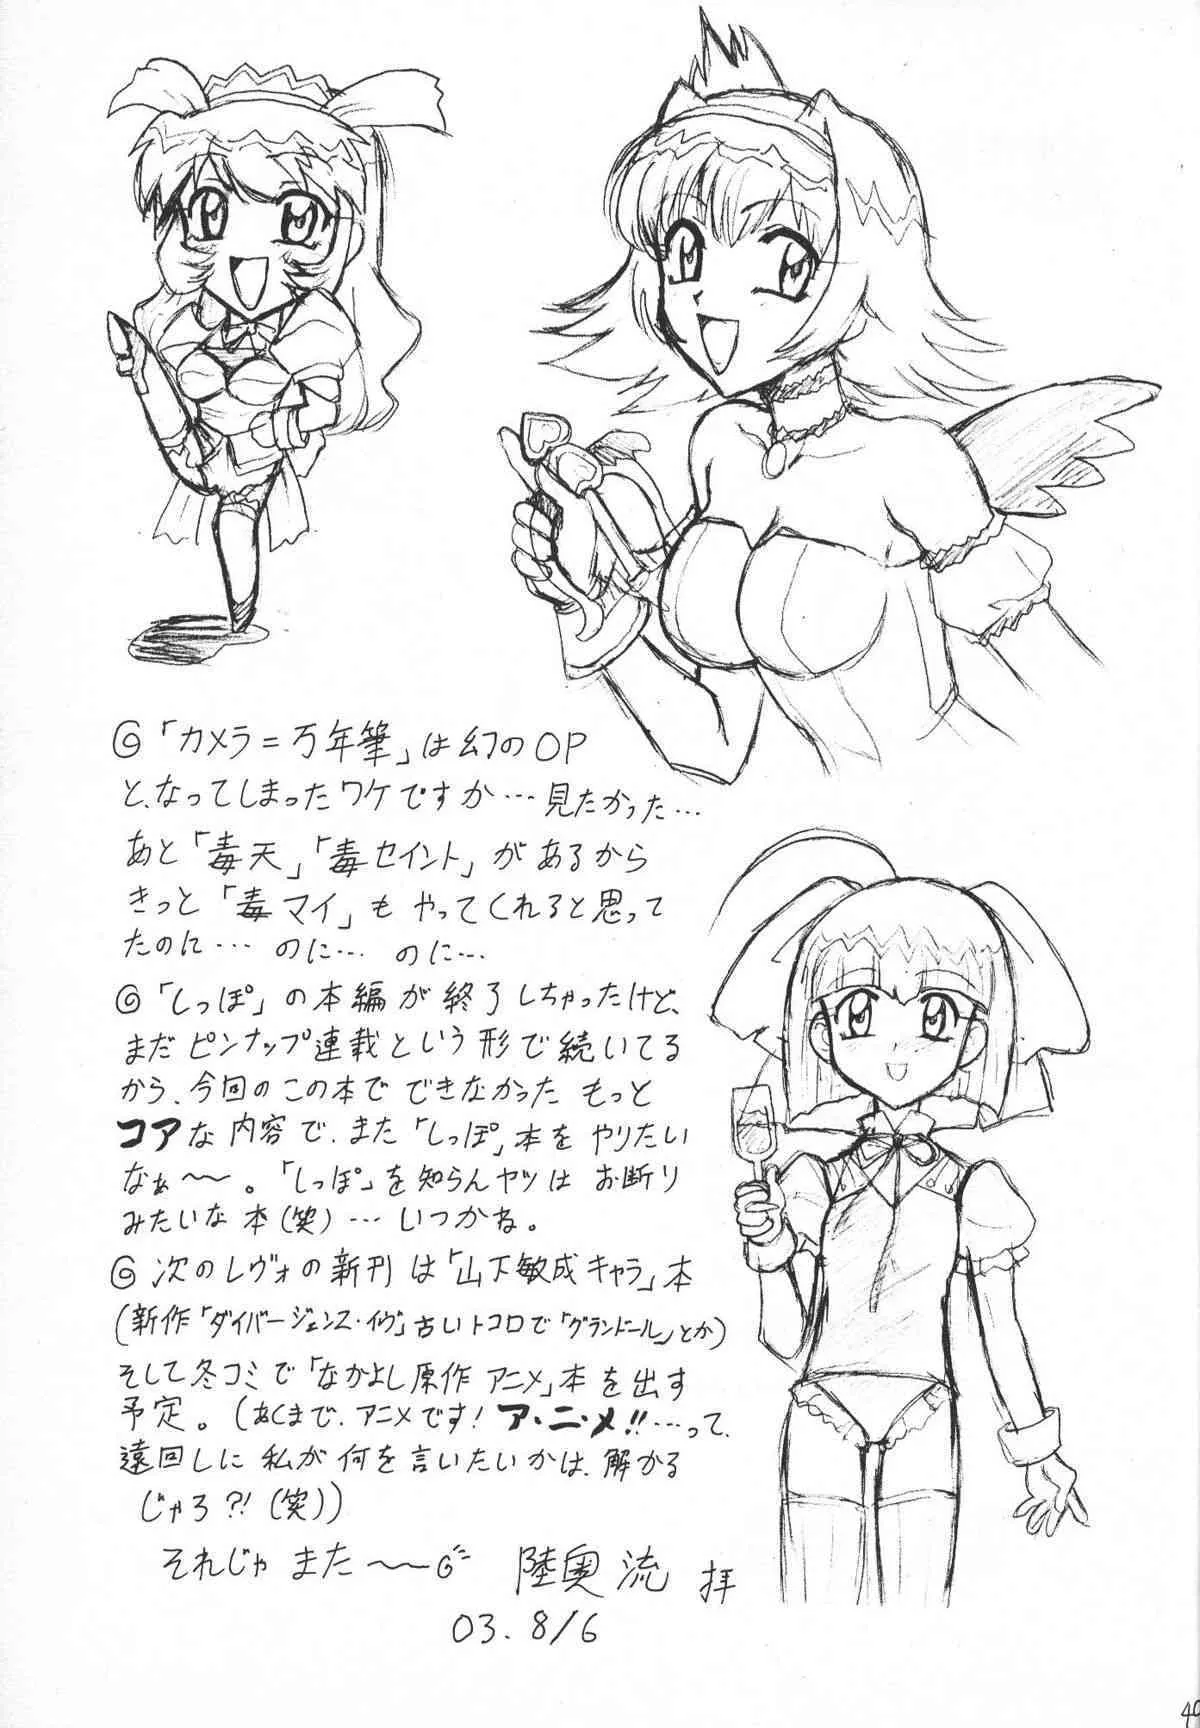 ◎「カメラ=万年筆」は幻のOP
と、なってしまったワケですか…見たかった…
あと「毒天」「毒セイント」があるから
きっと「毒マイ」もやってくれると思って
たのに…のに…のに…
◎「しっぽ」の本編が終了しちゃったけど、
まだピンナップ連載という形で続いてる
から、今回のこの本でできなかったもっと
コアな内容で、また「しっぽ」本をやりたい
なぁ〜〜。「しっぽ」を知らんヤツはお断り
みたいな本(笑)…いつかね。
◎次のレヴォの新刊は「山下敏成キャラ」本
(新作「ダイバージェンス・イヴ」古いトコロで「グランドール」とか)
そして冬コミで「なかよし原作アニメ」本を出す
予定。(あくまで、アニメです!ア・ニ・メ!!…って、
遠回しに私が何を言いたいかは、解かる
じゃろ?!(笑))
それじゃまた〜〜
陸奥 流 拝
03.8/6